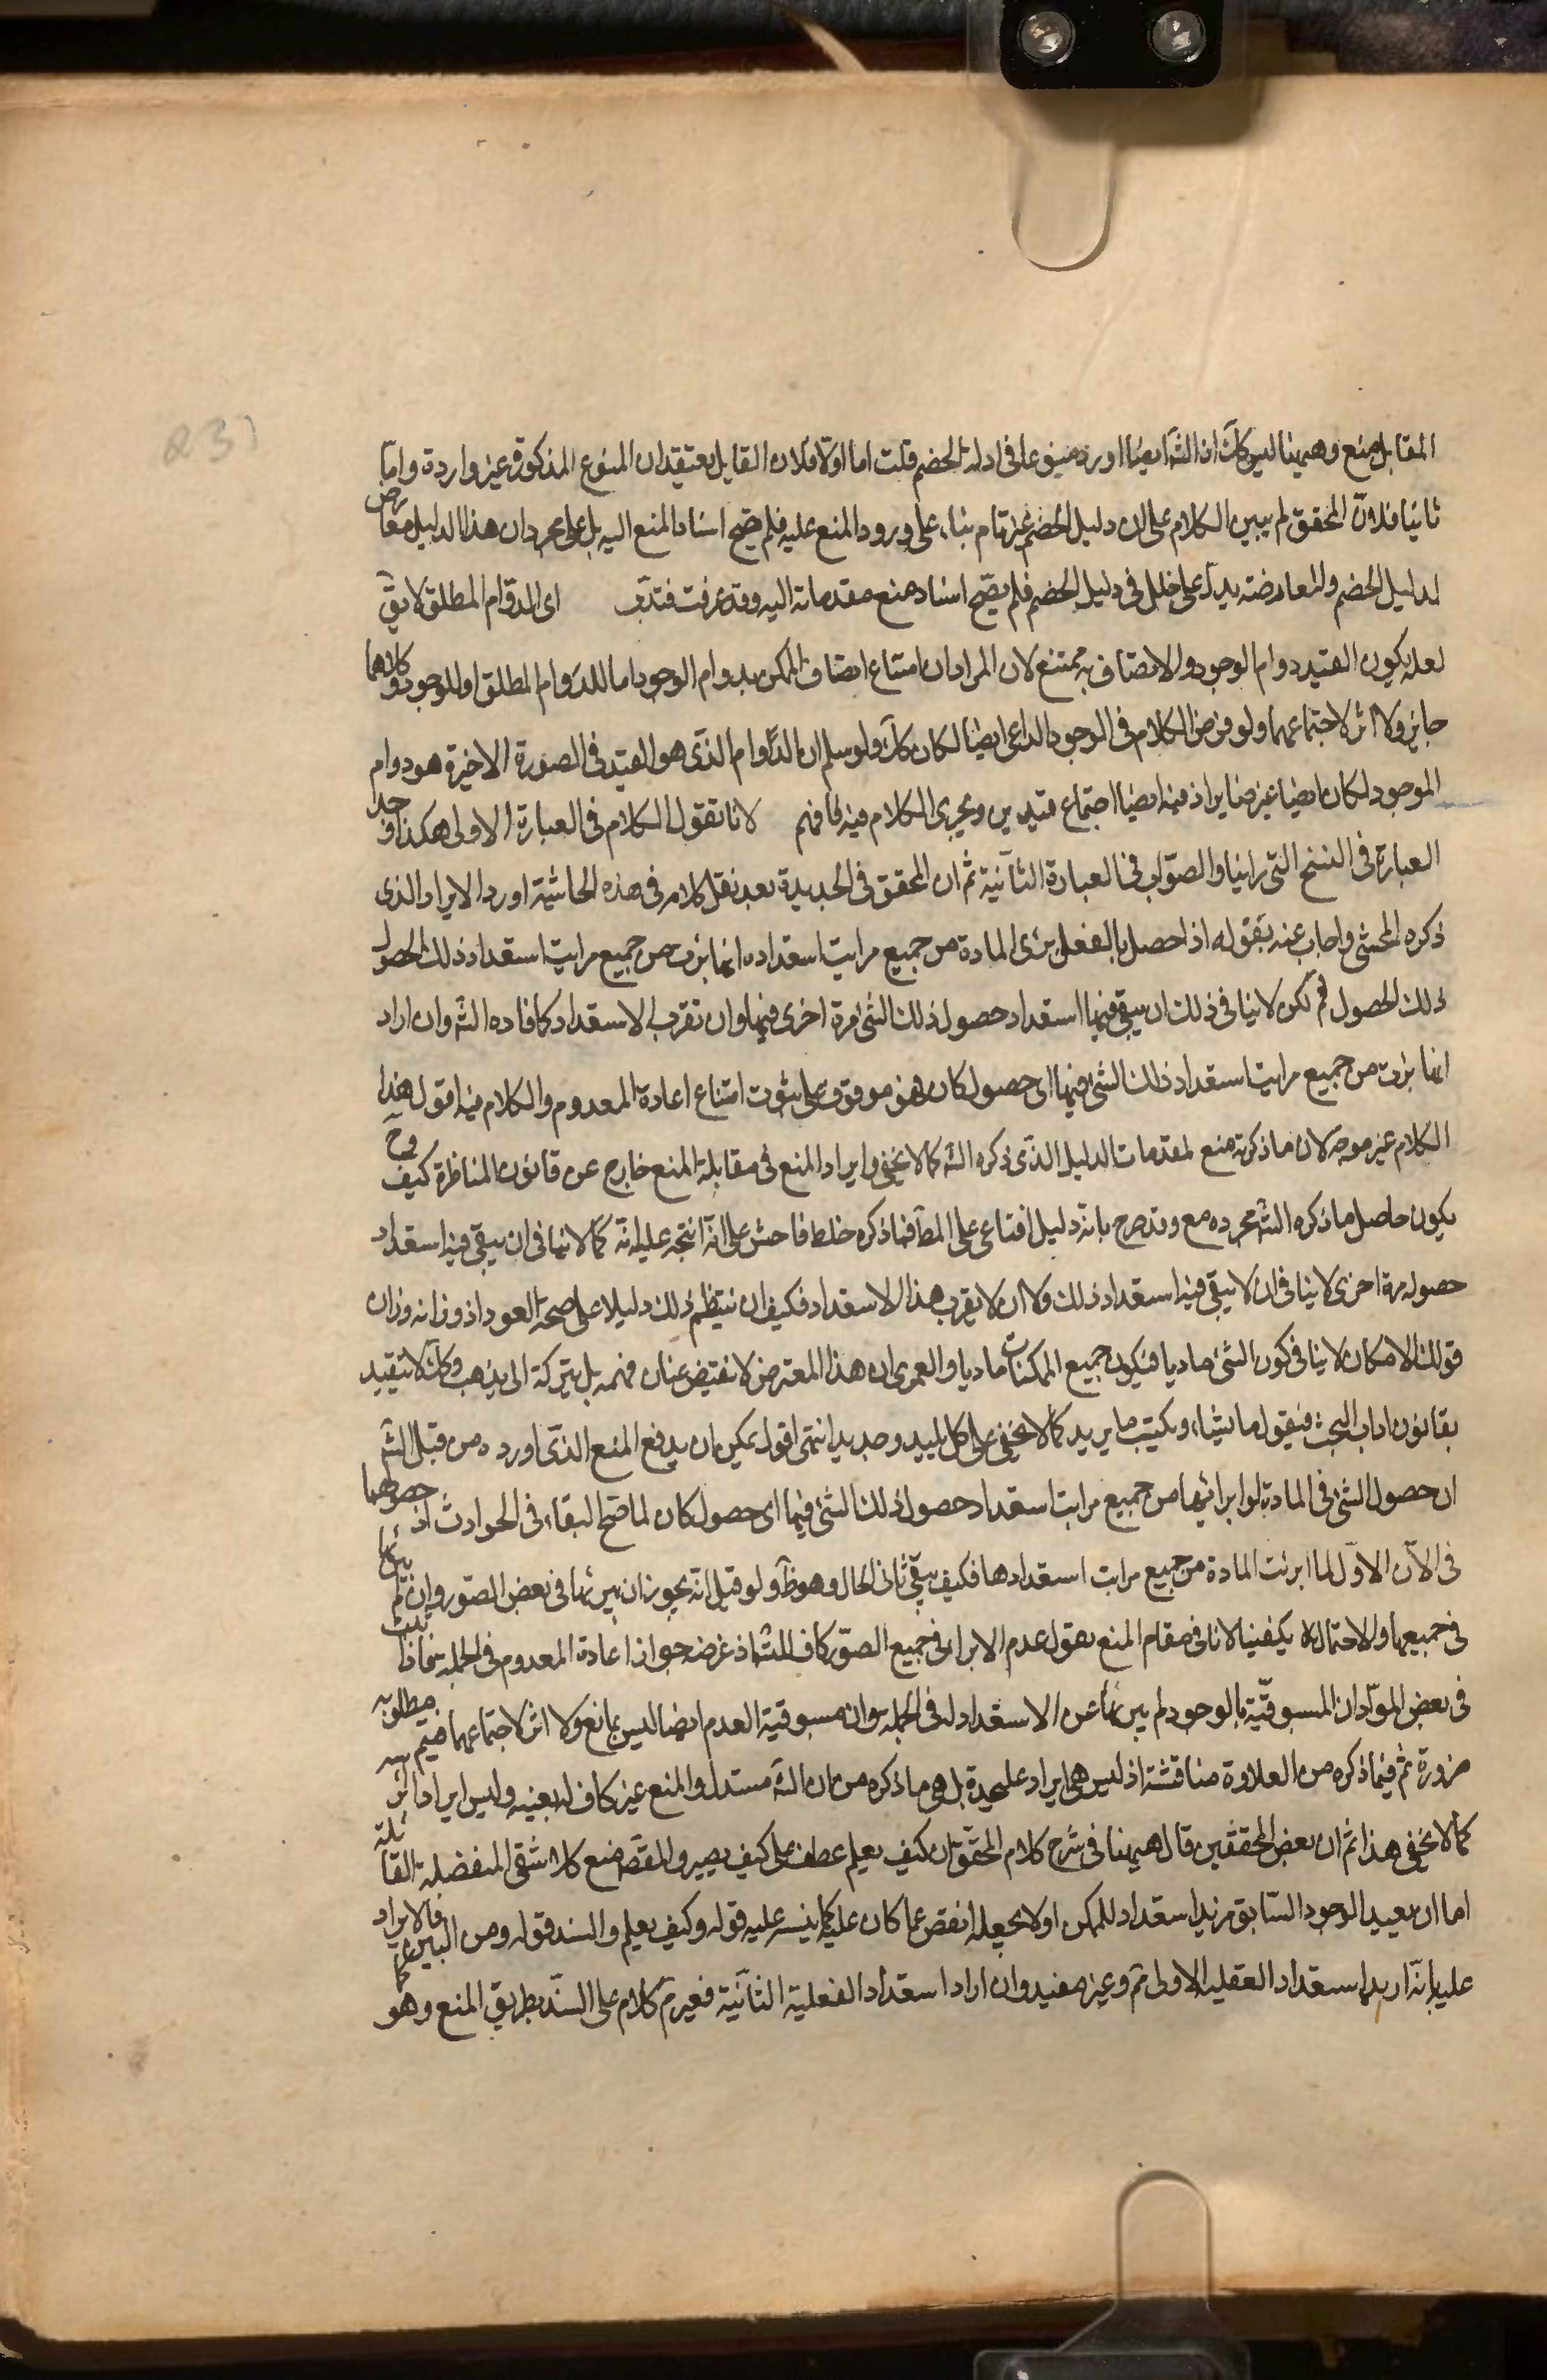 المقابل منع وههنا ليس كك اذ الشه ايضا اورد منوعا على فى ادلة الخصم قلت اما اولا فلان القايل يعتقد ان المنوع المذكورة غير واردة واما
ثانيا فلان المحقق لم يبين الكلام على ان دليل الخصم غير تام بناء على ورود المنع عليه فلم صح اسناد المنع اليه بل على مجرد ان هذا الدليل معارض
لدليل الخصم والمعارضة يدل على خلل فى دليل الخصم فلم يصح اسناد منع مقدماته اليه وقد عرفت فتدبر اى الدوام المطلق لا يق
لعله يكون القيد دوام الوجود والاتصاف به ممتنع لان المراد ان امتناع اتصاف الممكن بدوام الوجود اما للدوام المطلق او للوجود وكلاهما
جايز ولا اثر لاجتماعهما ولو فرض الكلام فى الوجود الداعى ايضا لكان كك ولو سلم ان الدوام الذى هو القيد فى الصورة الاخيرة هو دوام
الموجود لكان ايضا غير ضاير اذ فيه ايضا اجتماع قيدين ويجرى الكلام فيه فافهم لانا نقول الكلام فى العبارة الاولى هكذا وجد
العبارة فى النسخ التى رايناها والصواب فى العبارة الثانية ثم ان المحقق فى الجديدة بعد نقل كلامه فى هذه الحاشية اورد الايراد الذى
ذكره المحشى واجاب عنه بقوله اذا حصل بالفعل برئ المادة من جميع مراتب استعداده انها برئت من جميع مراتب استعداد ذلك الحصول
ذلك الحصول فم لكن لا ينافى ذلك ان يبقى فيها استعداد حصول ذلك الشئ مرة اخرى فيها وان تقرب الاستعداد كما افاده الشه وان اراد
انها برئت من جميع مراتب استعداد ذلك الشئ فيها اى حصول كان فهو موقوف على ثبوت امتناع اعادة المعدوم والكلام فيه اقول هذا
الكلام غير موجه لان ما ذكرته منع لمقدمات الدليل الذى ذكره الشه كما لا يخفى وايراد المنع فى مقابلة المنع خارج عن قانون المناظرة وح كيف
يكون حاصل ما ذكره الشه مجرده مع وقد صرح بانه دليل اقناعى على المط فما ذكره خلط فاحش على انه اتجه عليه انه كما لا ينافى ان يبقى فيه استعداد
حصوله مرة اخرى لا ينافى ان لا يبقى فيه استعداد ذلك ولا ان لا يقرب هذا الاستعداد فكيف ان ينتظم ذلك دليلا على صحة العود اذ وزانه وزان
قولك الامكان لا ينافى كون الشئ ماديا فيكون جميع الممكنات ماديا ولعمرى ان هذا المعترض لا يقتض عنان فهمه بل يتركه الى يذهب وكك لا يتقيد
بقانون اداب البحث فيقول ما يشاء ويكتب ما يريد كما لا يخفى على كل بليد وحديد انتهى اقول يمكن ان يدفع المنع الذى اورده من قبل الشه
ان حصول الشئ فى المادة لو ابرائها من جميع مراتب استعداد حصول ذلك الشئ فيها اى حصول كان لما صح البقاء فى الحوادث اذ حصولها
فى الآن الاول لما ابرئت المادة من جميع مراتب استعدادها فكيف يبقى ثانى الحال وهو ظ ولو قيل انه يجوز ان يبرئها فى بعض الصور وان لم يبرئها
فى جميعها والاحتمال لا يكفينا لانا فى مقام المنع نقول عدم الابراء فى جميع الصور كاف للشه اذ غرضه جواز اعادة المعدوم فى الجملة فاذا ثبت
فى بعض المواد ان المسبوقية بالوجود لم يبرئها عن الاستعداد له فى الجملة وان مسبوقية العدم ايضا ليس بمانع ولا اثر لاجتماعهما فيتم مطلوبه
ضرورة ثم فيما ذكره من العلاوة مناقشة اذ ليس هى ايراد عليحدة بل هى ما ذكره من ان الشه مستدل والمنع غير كاف له بعينه وليس ايرادا اخر
كما لا يخفى هذا ثم ان بعض المحققين قال ههنا فى شرح كلام المحقق ان كيف يعلم عطف على كيف يصير والمقص منع كلا شقى المنفصلة القائلة
اما ان يعيد الوجود السابق مزيد استعداد للممكن او لا يجعله انقص عما كان عليه كما ينبه عليه قوله وكيف يعلم والسند قوله ومن البين فالايراد
عليه بانه اريد استعداد العقلية الاولى فم وغير مفيد وان اراد استعداد الفعلية الثانية فغير تم كلام على السند بطريق المنع وهو كما